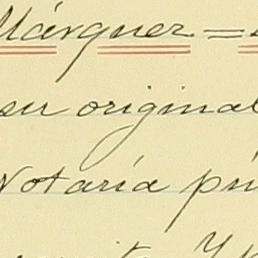 Márquez =
su original
Notaría pú